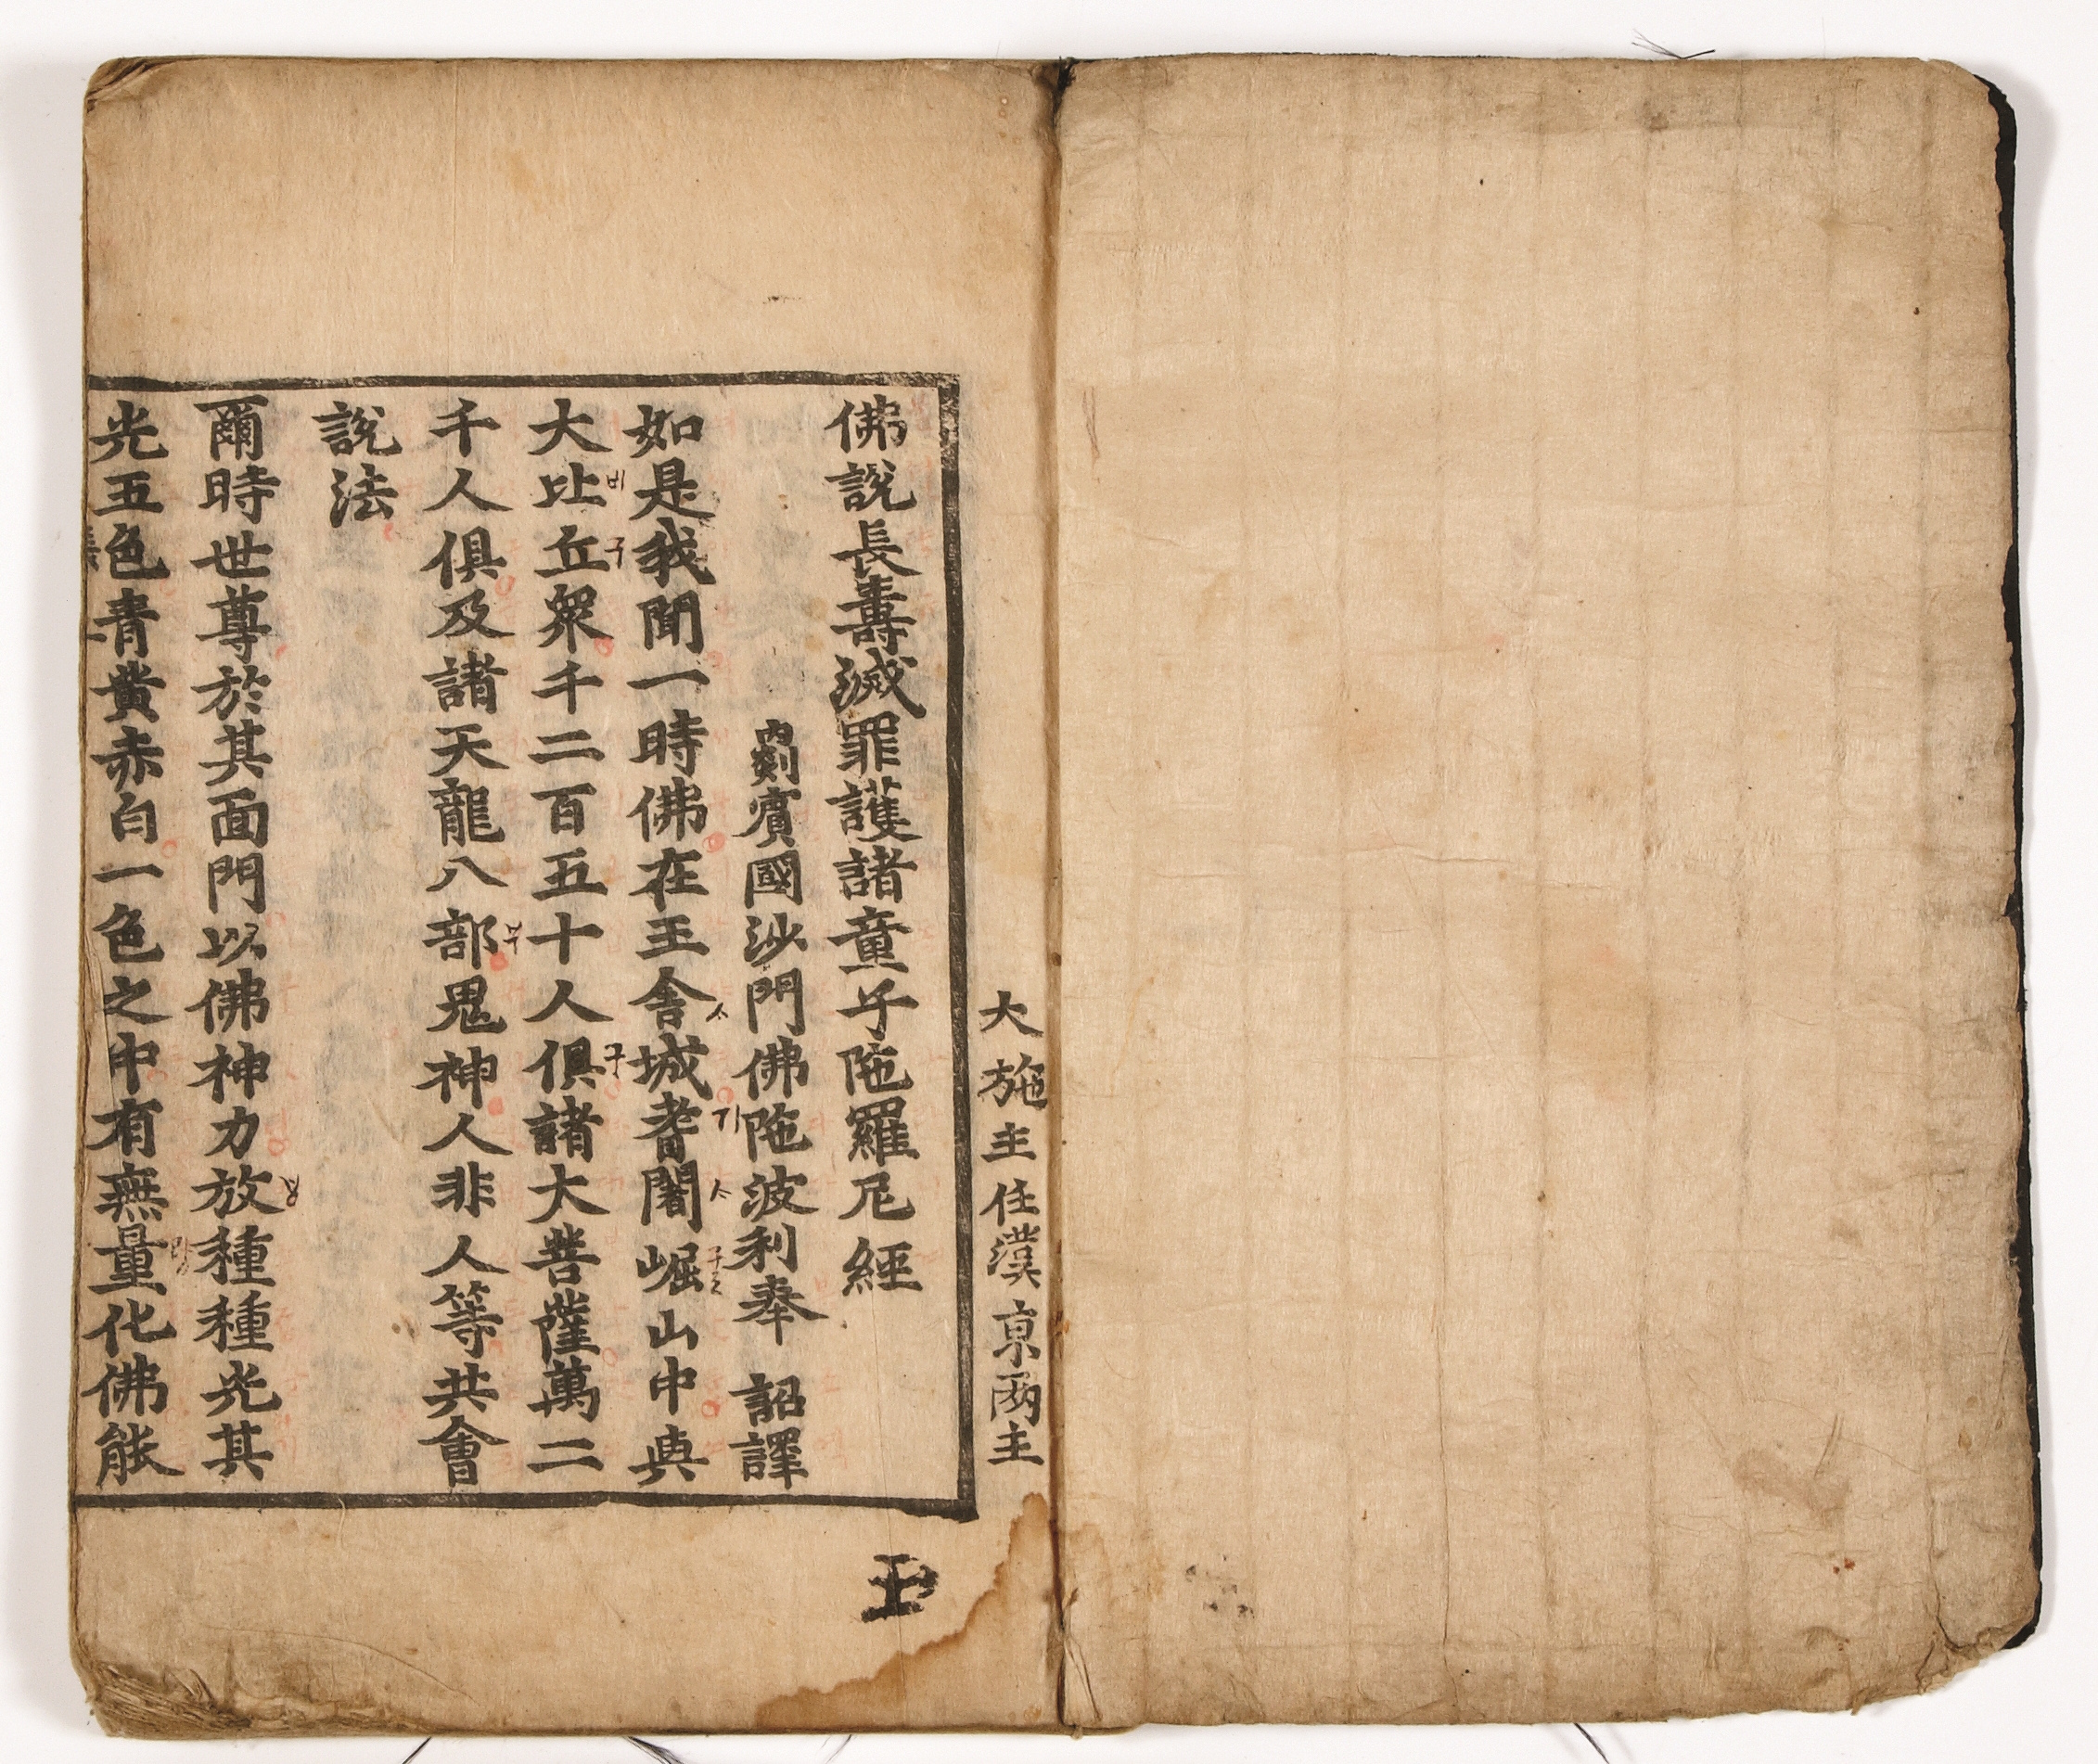 大施主任漢京兩主
佛說長壽滅罪護諸童子陁羅尼經
罽賓國沙門佛陁波利奉 詔譯
如是我聞一時佛在王舍城耆闍崛山中與
사 기 사 구ㄹ
大比丘衆千二百五十人俱諸大菩薩萬二
비 구 구
千人俱及諸天龍八部鬼神人非人等共會
부
說法
爾時世尊於其面門以佛神力放種種光其
방
光五色青黄赤白一色之中有無量化佛能
랑